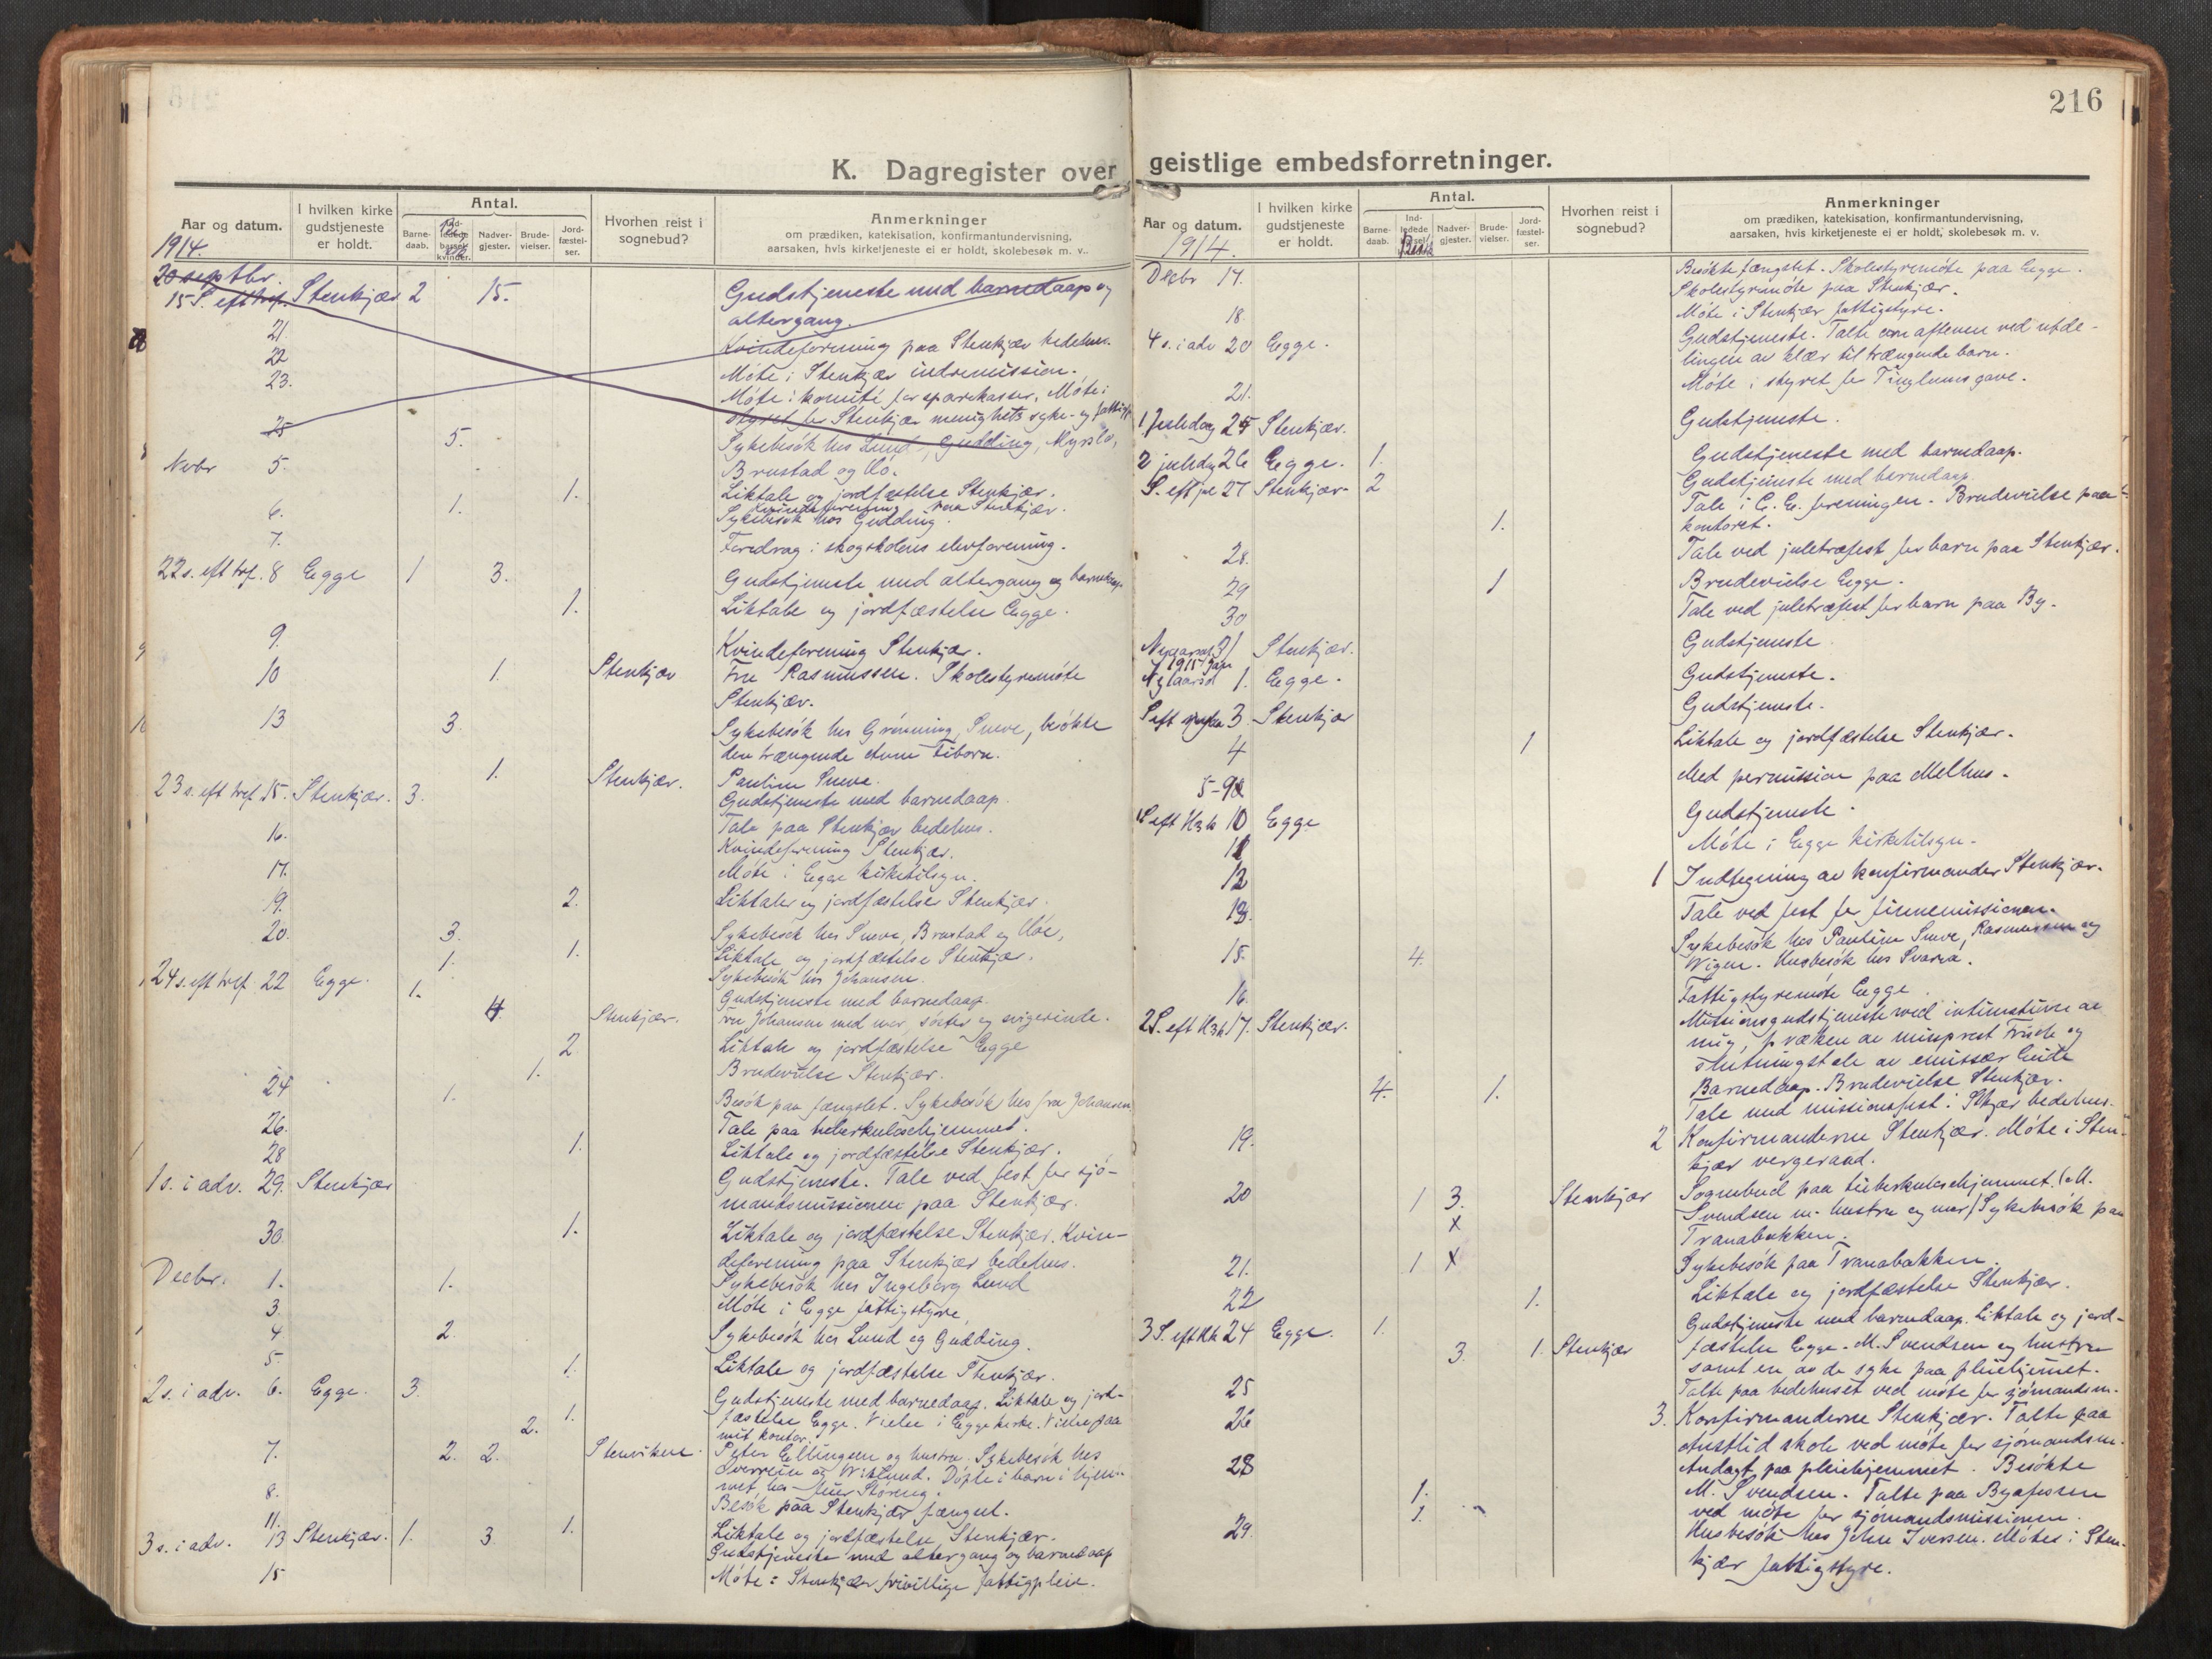 216
K. Dagregister over geistlige embedsforretninger.
Aar og datum.
I hvilken kirke gudstjeneste er holdt.
Antal.
Barne-daab.
Nadver-gjester.
Brude-vielser.
Jord-fæstel-ser.
Hvorhen reist i sognebud?
Anmerkninger
om prædiken, katekisation, konfirmantundervisning,
aarsaken, hvis kirketjeneste ei er holdt, skolebesøk m. v.
1914.
20 septbr.
15 S. eft tref. Stenkjær 2 15. Gudstjeneste med barnedaap og
altergang.
21. Kvindeforening paa Stenkjær bedehus.
22 Møte i Stenkjær indremission.
23. Møte i komité for sparekasser. Møte i
styret for Stenkjær menighets syke- og fattigpl
25 5. Sykebesøk hos Lund, Gudding, Myrslo,
Novbr 5. Brustad og Hó.
1. Liktale og jordfæstelse Stenkjær.
Kvindeforening paa Stenkjær.
6. 1. Sykebesøk hos Gudding.
7. Foredrag i skogskolens elevforening.
22 s. eft tref. 8 Egge 1 3. Gudstjeneste med altergang og barnedaap
1. Liktale og jordfæstelse Egge.
9. Kvindeforening Stenkjær.
10 1. Stenkjær Fru Rasmussen. Skolestyremøte
Stenkjær.
13 3. Sykebesøk hos Grønning, Sneve, besøkte
den trængende Anne Tiborn.
1. Stenkjær. Pauline Sneve.
23 s. eft tref. 15. Stenkjær. 3. Gudstjeneste med barnedaap.
Tale paa Stenkjær bedehus.
16. Kvindeforening Stenkjær.
17. Møte i Egge kirketilsyn.
19. 2. Liktaler og jordfæstelser Stenkjær.
20. 3. Sykebesøk hos Sneve, Brustad og Hóe,
1. 1. Liktale og jordfæstelse Stenkjær.
Sykebesøk hos Johansen.
24 s. eft tref. 22 Egge. 1. Gudstjeneste med barnedaap.
4. Stenkjær. Fru Johansen med mor, søster og svigerinde.
2 Liktale og jordfæstelse Egge
1. Brudevielse Stenkjær.
24 1. Besøk paa fængslet. Sykebesøk hos fru Johansen
26. Tale paa tuberkulosehjemmet.
28 1. Liktale og jordfæstelse Stenkjær.
1 s. i adv. 29. Stenkjær Gudstjeneste. Tale ved fest for sjø-
mandsmissionen paa Stenkjær.
30. 1. Liktale og jordfæstelse Stenkjær. Kvin-
deforening paa Stenkjær bedehus.
Decbr. 1. 1. Sykebesøk hos Ingeborg Lund
3. Møte i Egge fattigstyre
4 2. Sykebesøk hos Lund og Gudding.
5. 1. Liktale og jordfæstelse Stenkjær.
2 s. i adv. 6. Egge. 3. Gudstjeneste med barnedaap. Liktale og jord-
2. 1. fæstelse Egge. Vielse i Egge kirke. Vielse paa
mit kontor.
7. 2. 2. Stenviken. Peter Ellingsen og hustru. Sykebesøk hos
Sverrein og Wiklund. Døpte 1 barn i hjem-
met hos
8. Besøk paa Stenkjær fængsel.
11. 1. Liktale og jordfæstelse Stenkjær.
3 s. i adv. 13 Stenkjær. 1. 3 Gudstjeneste med altergang og barnedaap
15 Møte i Stenkjær frivillige fattigpleie.
Aar og datum.
I hvilken kirke gudstjeneste er holdt.
Antal.
Barne-daab.
Nadver-gjester.
Brude-vielser.
Jord-fæstel-ser.
Hvorhen reist i sognebud?
Anmerkninger
om prædiken, katekisation, konfirmantundervisning,
aarsaken, hvis kirketjeneste ei er holdt, skolebesøk m. v.
1914.
Decbr 17. Besøkte fængslet. Skolestyremøte paa Egge.
Skolestyremøte paa Stenkjær.
18. Møte i Stenkjær fattigstyre.
4 s. i adv 20 Egge. Gudstjeneste. Talte om aftenen ved utde-
lingen av klær til trængende barn.
21. Møte i styret for Tinglums gave.
1 juledag 25 Stenkjær. Gudstjeneste.
2 juledag 26 Egge. 1. Gudstjeneste med barnedaap.
S. eft jul 27 Stenkjær 2 Gudstjeneste med barnedaap.
Tale i C. E. foreningen. Brudevielse paa
1. kontoret.
28. Tale ved juletræfest for barn paa Stenkjær.
29 1 Brudevielse Egge.
30 Tale ved juletræfest for barn paa By.
Nyaarsaf 31 Stenkjær. Gudstjeneste.
1915 Jan
Nytaarsd 1. Egge. Gudstjeneste.
S eft nytaar 3. Stenkjær Gudstjeneste.
4 1 Liktale og jordfæstelse Stenkjær.
5-9 Med permission paa Melhus.
1 S eft H3k 10 Egge Gudstjeneste.
11 Møte i Egge kirketilsyn.
12 1 Indtegning av konfirmander Stenkjær.
13. Tale ved fest for finnemissionen.
15. 4. Sykebesøk hos Pauline Sneve, Rasmussen og
Wigen. Husbesøk hos Svarva.
16. Fattigstyremøte Egge.
2 S. eft H3k 17. Stenkjær. Missionsgudstjeneste med intimation av
mig, præken av misprest Trude og
slutningstale av emissær Eide
4. 1. Barnedaap. Brudevielse Stenkjær.
Tale ved missionsfest i Stkjær bedehus.
19. 2 Konfirmanderne Stenkjær. Møte i Sten-
kjær vergeraad.
20 1 3. Stenkjær Sognebud paa tuberkulosehjemmet. (M.
x Svendsen m. hustru og mor) Sykebesøk paa
Tranabakken.
21. 1 x Sykebesøk paa Tranabakken.
22 1. Liktale og jordfæstelse Stenkjær.
3 S. eft Hk 24 Egge. 1. Gudstjeneste med barnedaap. Liktale og jord-
3. 1. Stenkjær fæstelse Egge. M. Svendsen og hustru
samt en av de syke paa pleiehjemmet.
25 Talte paa bedehuset ved møte for sjømandsm.
26 3. Konfirmanderne Stenkjær. Talte paa
Austlid skole ved møte for sjømandsm.
28 Andagt paa pleiehjemmet. Besøkte
1. M. Svendsen. Talte paa Byafossen
1. ved møte for sjømandsmissionen.
29. Husbesøk hos John Iversen. Møtes i Sten-
kjær fattigstyre.